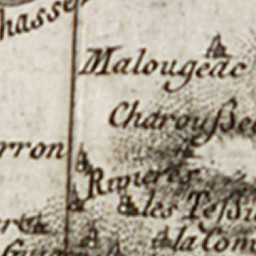 hasse
Malougeac
Charouſſe
rron
Rivieres
les Teſſu
la Com